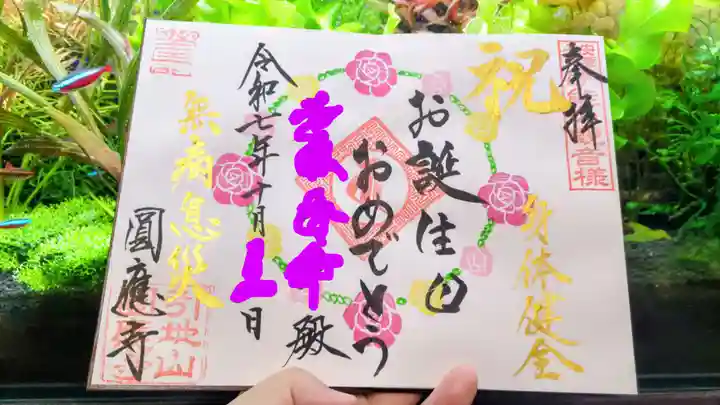 奉拝
祝
身体健全
お誕生日
おめでとう
殿
令和七年十月
日
無病息災
圓應寺
引地山